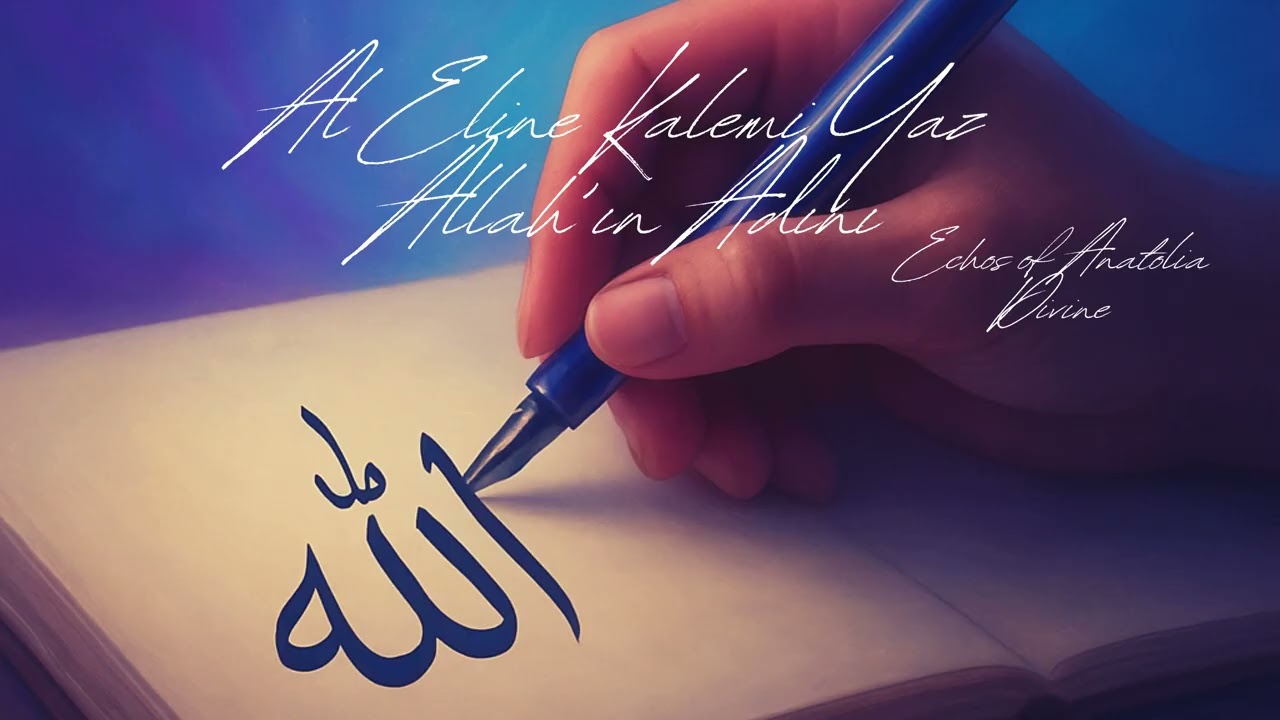 Al Eline Kalemi Yaz
Allah'ın Adını
Echos of Anatolia
Divine
الله